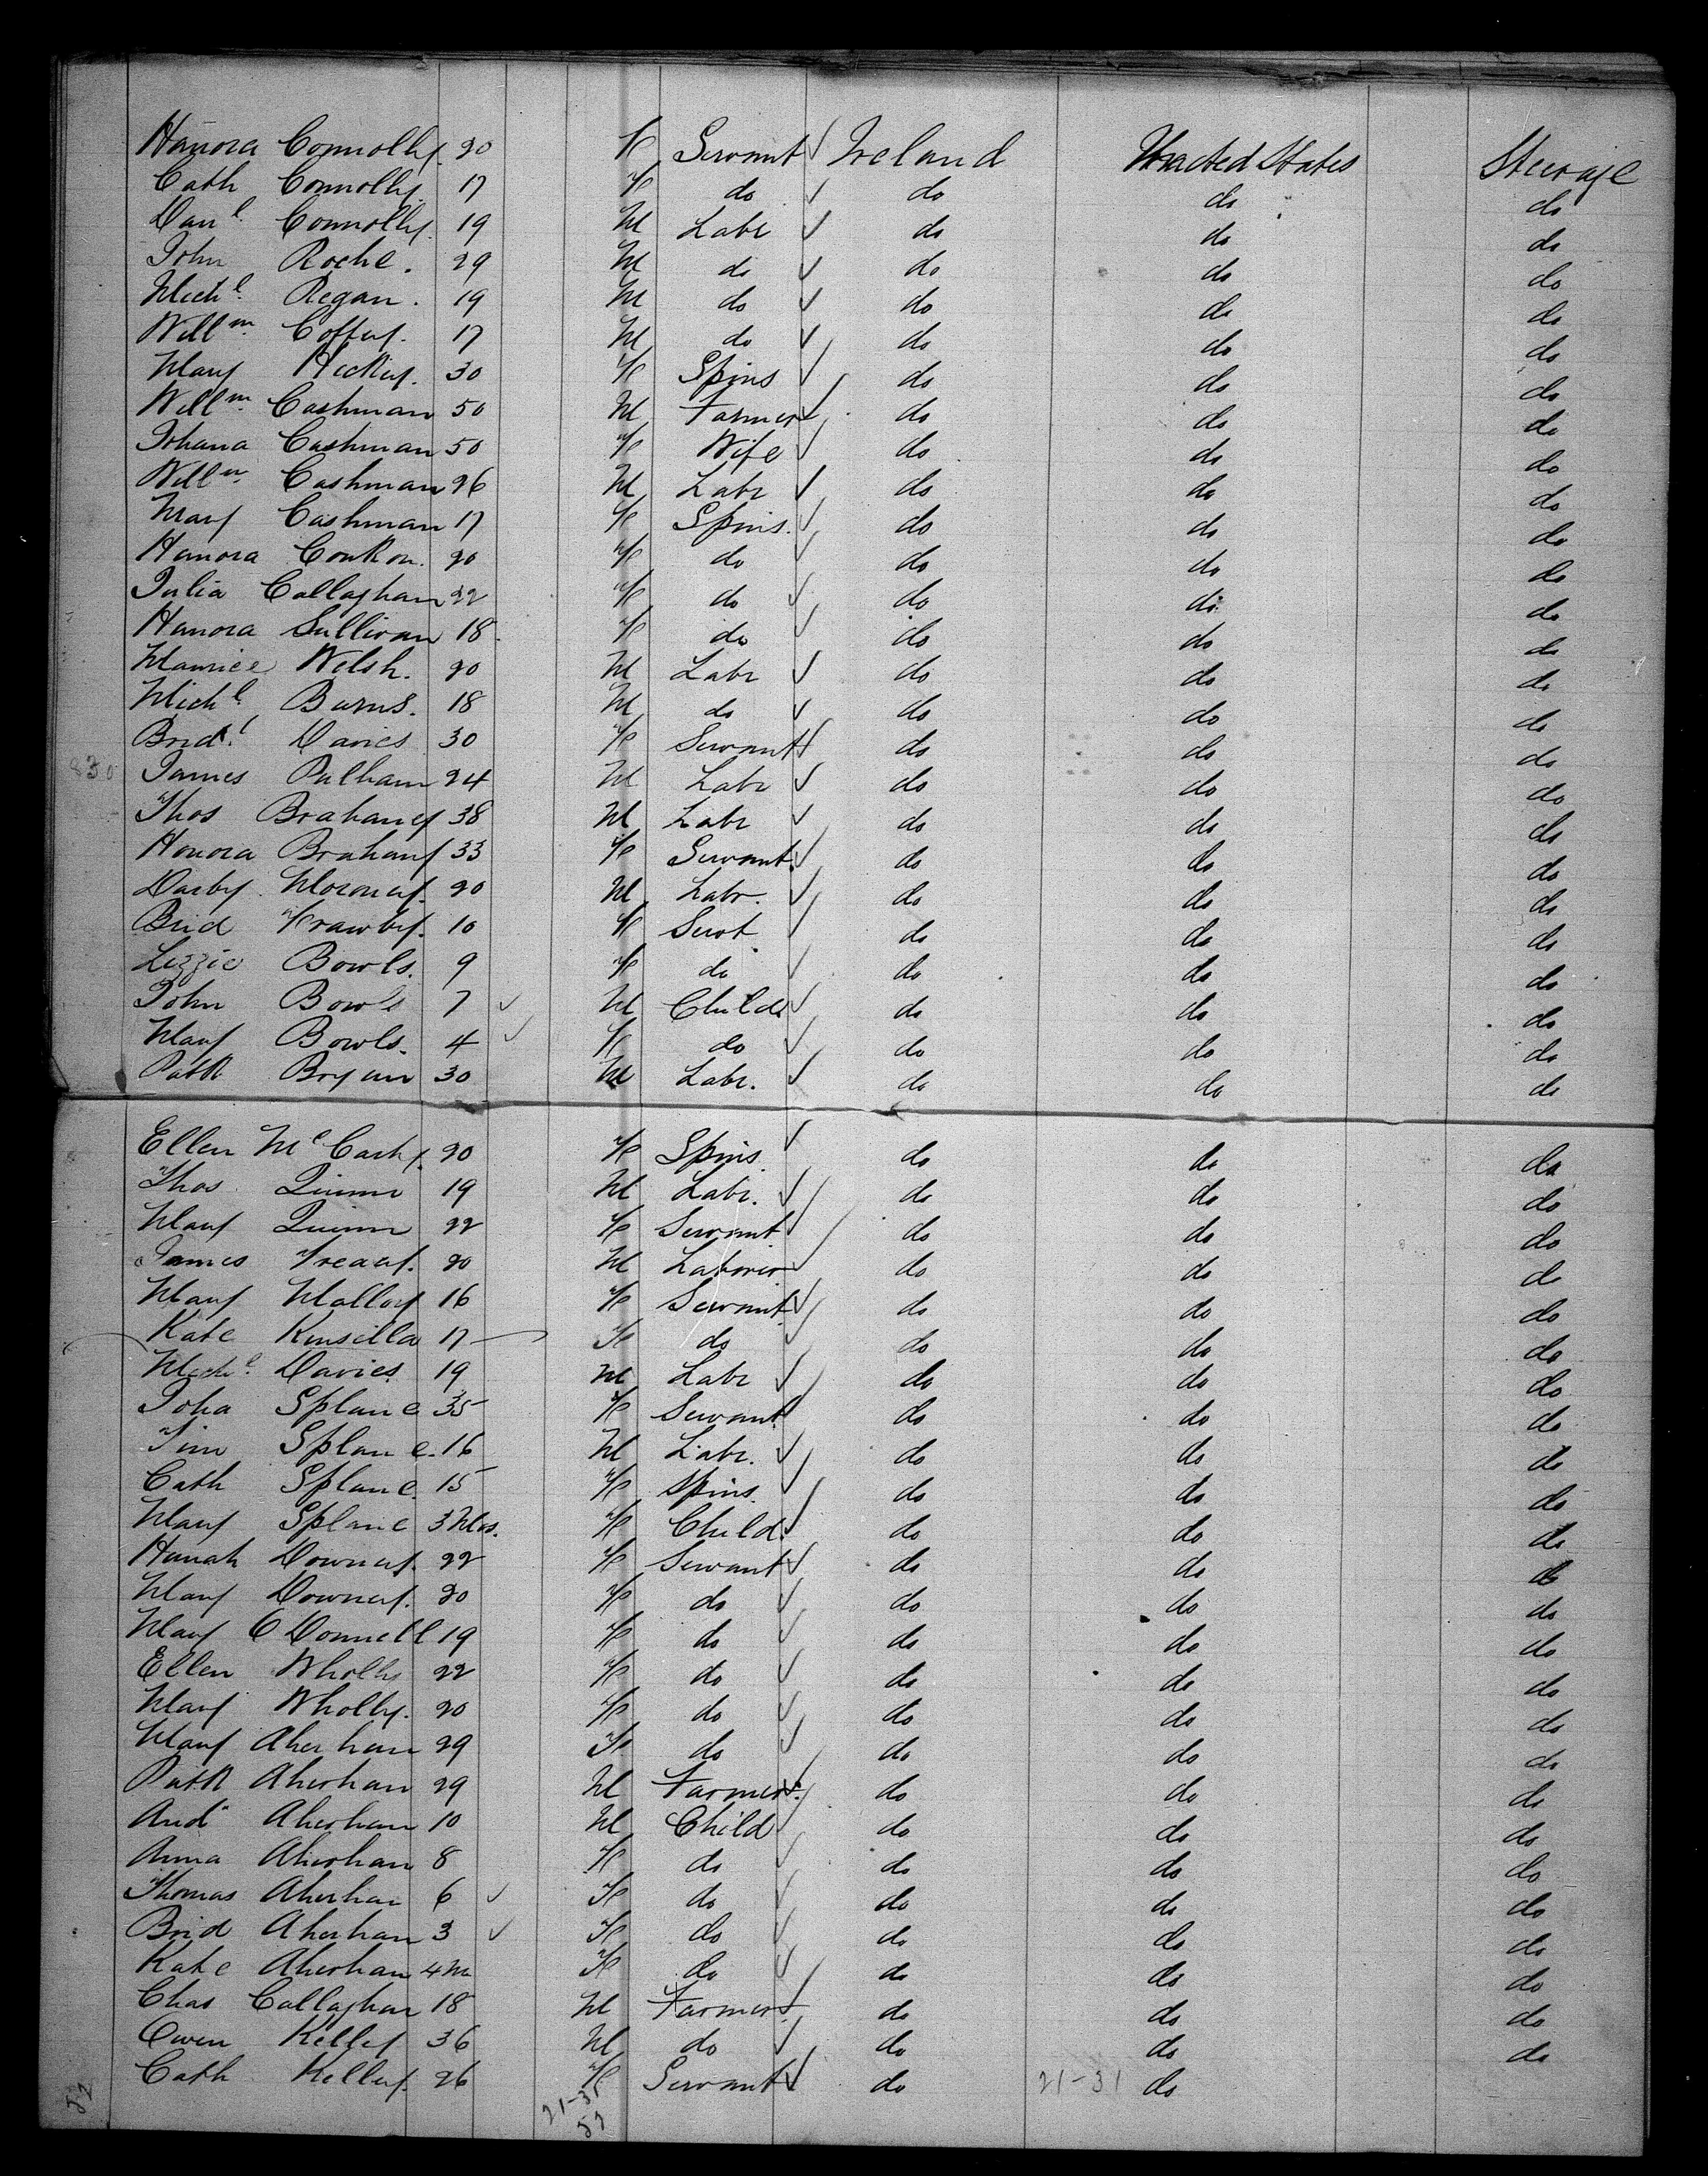 Hanora Connolly. 20 F Servant ✓ Ireland United States Steerage
Cath Connolly. 17 F do ✓ do do do
Danl. Connolly. 19 M Labr ✓ do do do
John Roche. 29 M do ✓ do do do
Michl. Regan. 19 M do ✓ do do do
Willm. Coffey. 17 M do ✓ do do do
Mary Hickey. 30 F Spins ✓ do do do
Willm. Cashman 50 M Farmer ✓ do do do
Johana Cashman 50 F Wife ✓ do do do
Willm. Cashman 26 M Labr ✓ do do do
Mary Cashman 17 F Spins. ✓ do do do
Hanora Conkon. 20 F do ✓ do do do
Julia Callaghan 22 F do ✓ do do do
Hanora Sullivan 18. F do ✓ do do do
Maurice Welsh. 20 M Labr ✓ do do do
Michl. Burns. 18 M do ✓ do do do
Bridt. Davies 30 F Servant ✓ do do do
830 James Pulham 24 M Labr ✓ do do do
Thos Brahaney 38 M Labr ✓ do do do
Honora Brahany 33 F Servant. ✓ do do do
Darby Moroney. 20 M Labr. ✓ do do do
Brid Frawley. 10 F Servt ✓ do do do
Lizzie Bowls. 9 F do ✓ do do do
John Bowls 7 ✓ M Childr ✓ do do do
Mary Bowls. 4 ✓ F do ✓ do do do
Patk Bryan 30 M Labr. ✓ do do do
Ellen McCarty. 20 F Spins. ✓ do do do
Thos Quinn 19 M Labr. ✓ do do do
Mary Quinn 22 F Servant ✓ do do do
James Treacy. 20 M Laborer ✓ do do do
Mary Malloy 16 F Servant ✓ do do do
Kate Kinsella 17 F do ✓ do do do
Michl. Davies 19 M Labr ✓ do do do
Joha Splane 35 F Servant ✓ do do do
Tim Splane. 16 M Labr. ✓ do do do
Cath Splane. 15 F Spins. ✓ do do do
Mary Splane 3 Mos. F Child. ✓ do do do
Hanah Downey. 22 F Servant ✓ do do do
Mary Downey. 20 F do ✓ do do do
Mary O Donnell 19 F do ✓ do do do
Ellen Wholly 22 F do ✓ do do do
Mary Wholly. 20 F do ✓ do do do
Mary Aherhan 29 F do ✓ do do do
Patk Aherhan 29 M Farmer. ✓ do do do
And Aherhan 10 M Child ✓ do do do
Anna Aherhan 8 F do ✓ do do do
Thomas Aherhan 6 ✓ F do ✓ do do do
Brid Aherhan 3 ✓ F do ✓ do do do
Kate Aherhan 4 M F do ✓ do do do
Chas Callaghan 18 M Farmer ✓ do do do
Owen Kelley 36 M do ✓ do do do
Cath Kelley. 26 F Servant ✓ do do
52 21-31 52 21-31